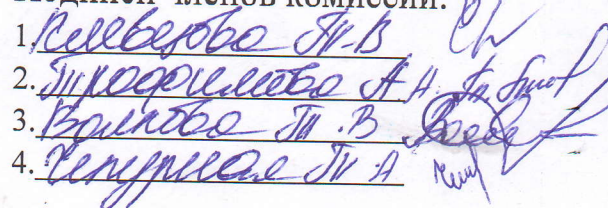 Подписи членов комиссии:
1. Клевезова Т.В
2. Трофимова А А.
3. Волкова Т.В
4. Чепурная Т.А